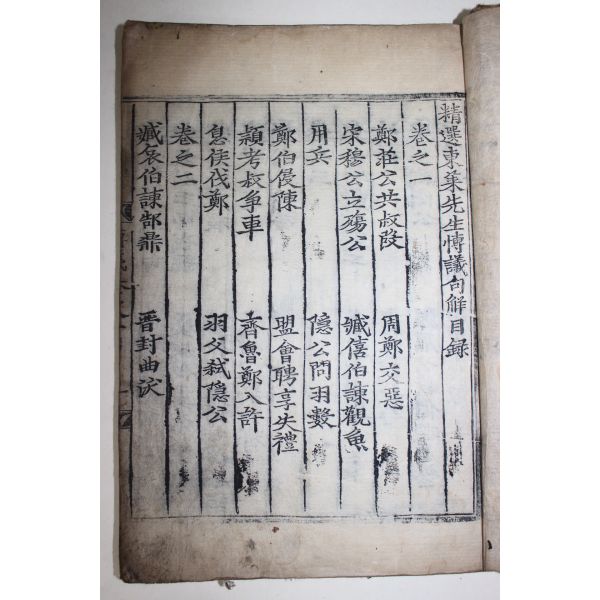 精選東萊先生博議句觧目録
卷之一
鄭莊公共叔段 周鄭交惡
宋穆公立殤公 臧僖伯諫觀魚
用兵 隱公問羽數
鄭伯侵陳 盟會聘享失禮
潁考叔争車 齊魯鄭入許
息侯伐鄭 羽父弑隱公
卷之二
臧哀伯諫郜鼎 晋封曲沃